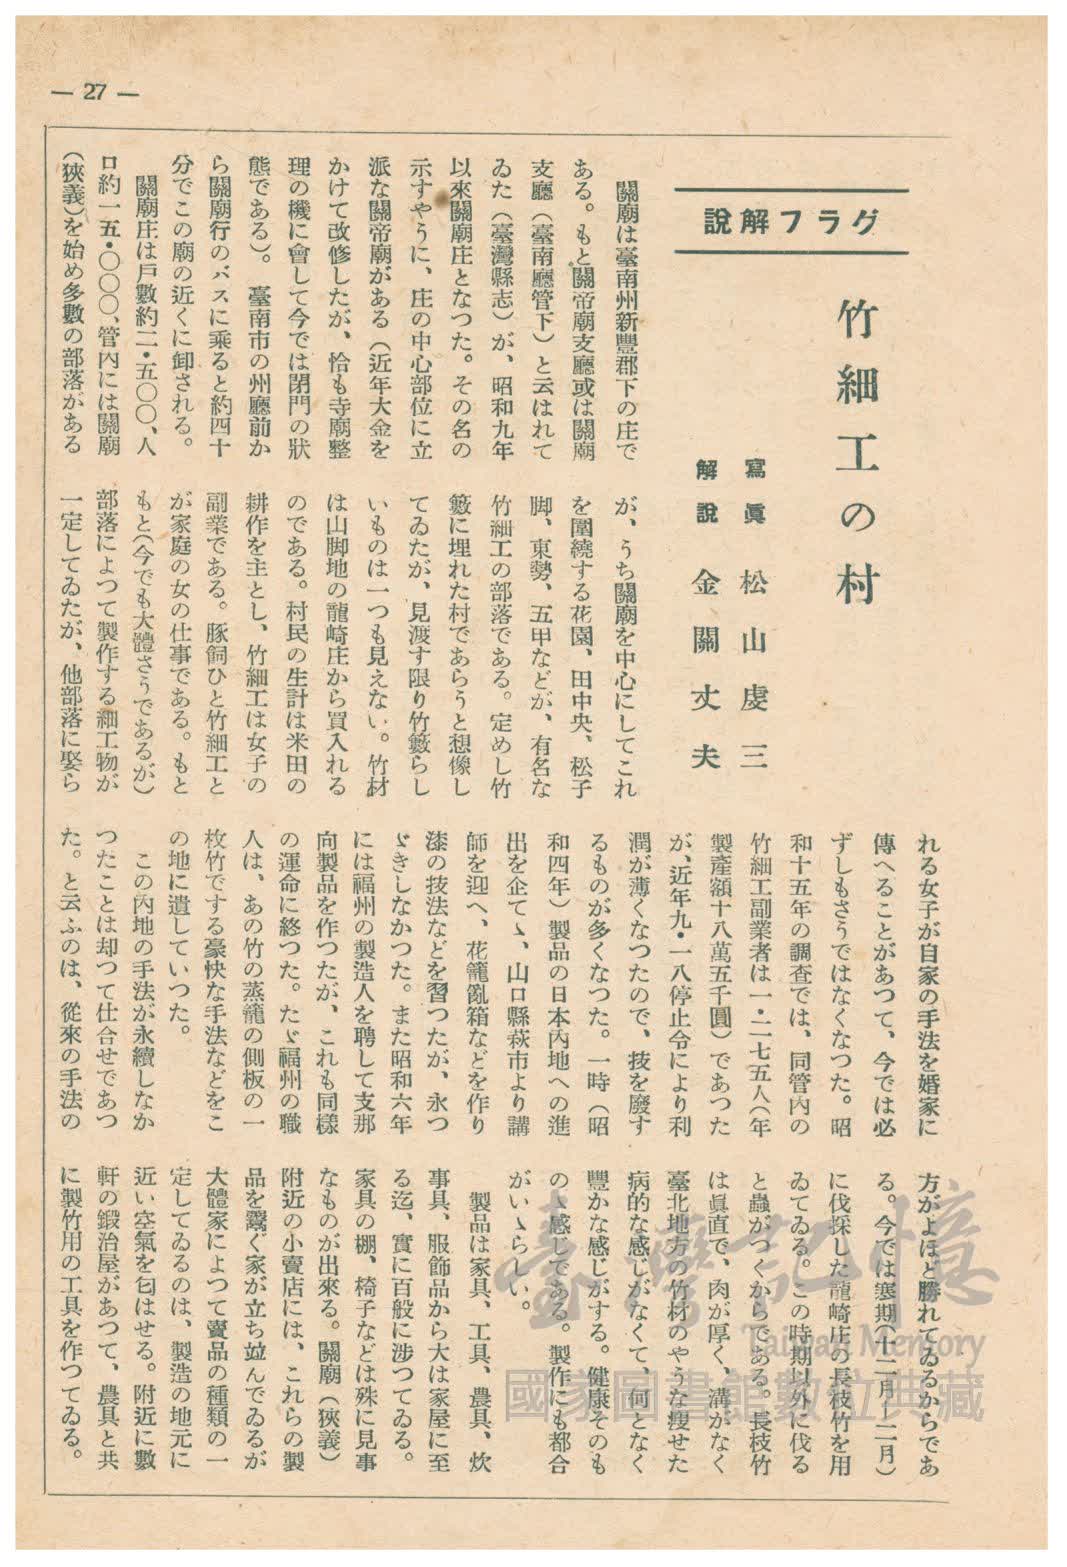 — 27 —
グラフ解說
竹細工の村
寫眞 松山虔三
解說 金關丈夫
關廟は臺南州新豐郡下の庄で
ある。もと關帝廟支廳或は關廟
支廳（臺南廳管下）と云はれて
ゐた（臺灣縣志）が、昭和九年
以來關廟庄となつた。その名の
示すやうに、庄の中心部位に立
派な關帝廟がある（近年大金を
かけて改修したが、恰も寺廟整
理の機に會して今では閉門の狀
態である）。臺南市の州廳前か
ら關廟行のバスに乘ると約四十
分でこの廟の近くに卸される。
關廟庄は戶數約二・五〇〇、人
口約一五・〇〇〇、管內には關廟
（狹義）を始め多數の部落がある
が、うち關廟を中心にしてこれ
を圍繞する花園、田中央、松子
脚、東勢、五甲などが、有名な
竹細工の部落である。定めし竹
籔に埋れた村であらうと想像し
てゐたが、見渡す限り竹籔らし
いものは一つも見えない。竹材
は山脚地の龍崎庄から買入れる
のである。村民の生計は米田の
耕作を主とし、竹細工は女子の
副業である。豚飼ひと竹細工と
が家庭の女の仕事である。もと
もと（今でも大體さうであるが）
部落によつて製作する細工物が
一定してゐたが、他部落に娶ら
れる女子が自家の手法を婚家に
傳へることがあつて、今では必
ずしもさうではなくなつた。昭
和十五年の調査では、同管內の
竹細工副業者は一・二七五人（年
製產額十八萬五千圓）であつた
が、近年九・一八停止令により利
潤が薄くなつたので、技を廢す
るものが多くなつた。一時（昭
和四年）製品の日本內地への進
出を企てゝ、山口縣萩市より講
師を迎へ、花籠亂箱などを作り
漆の技法などを習つたが、永つ
ゞきしなかつた。また昭和六年
には福州の製造人を聘して支那
向製品を作つたが、これも同樣
の運命に終つた。たゞ福州の職
人は、あの竹の蒸籠の側板の一
枚竹でする豪快な手法などをこ
の地に遺していつた。
この內地の手法が永續しなか
つたことは却つて仕合せであつ
た。と云ふのは、從來の手法の
方がよほど勝れてゐるからであ
る。今では寒期（十二月—二月）
に伐採した龍崎庄の長枝竹を用
ゐてゐる。この時期以外に伐る
と蟲がつくからである。長枝竹
は眞直で、肉が厚く、溝がなく
臺北地方の竹材のやうな瘦せた
病的な感じがなくて、何となく
豐かな感じがする。健康そのも
のゝ感じである。製作にも都合
がいゝらしい。
製品は家具、工具、農具、炊
事具、服飾品から大は家屋に至
る迄、實に百般に涉つてゐる。
家具の棚、椅子などは殊に見事
なものが出來る。關廟（狹義）
附近の小賣店には、これらの製
品を鬻ぐ家が立ち竝んでゐるが
大體家によつて賣品の種類の一
定してゐるのは、製造の地元に
近い空氣を匂はせる。附近に數
軒の鍛冶屋があつて、農具と共
に製竹用の工具を作つてゐる。
臺灣記憶
Taiwan Memory
國家圖書館數位典藏